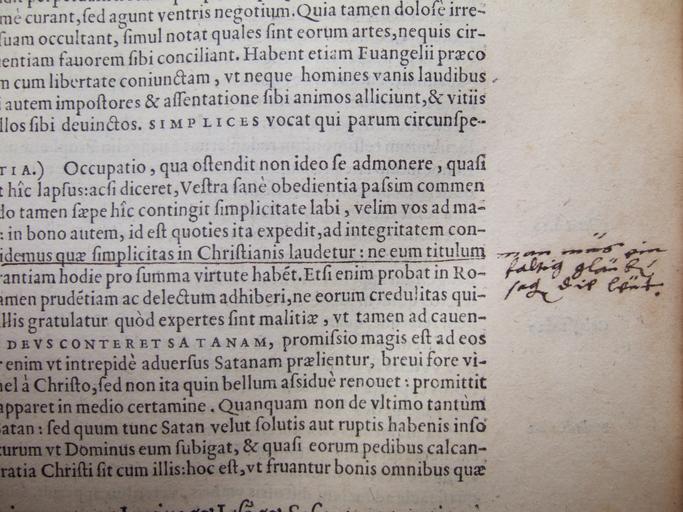 mè curant, sed agunt ventris negotium. Quia tamen dolosè irre-
suam occultant, simul notat quales sint eorum artes, nequis cir-
entiam fauorem sibi conciliant. Habent etiam Euangelii præco
m cum libertate coniunctam, vt neque homines vanis laudibus
i autem impostores & assentatione sibi animos alliciunt, & vitiis
llos sibi deuinctos. SIMPLICES vocat qui parum circunspe-
TIA.) Occupatio, qua ostendit non ideo se admonere, quasi
t hîc lapsus: acsi diceret, Vestra sanè obedientia passim commen
do tamen sæpe hîc contingit simplicitate labi, velim vos ad ma-
: in bono autem, id est quoties ita expedit, ad integritatem con-
idemus quæ simplicitas in Christianis laudetur: ne eum titulum
rantiam hodie pro summa virtute habēt. Etsi enim probat in Ro-
amen prudētiam ac delectum adhiberi, ne eorum credulitas qui-
illis gratulatur quòd expertes sint malitiæ, vt tamen ad cauen-
DEVS CONTERET SATANAM, promissio magis est ad eos
r enim vt intrepidè aduersus Satanam prælientur, breui fore vi-
nel à Christo, sed non ita quin bellum assiduè renouet: promittit
apparet in medio certamine. Quanquam non de vltimo tantùm
Satan: sed quum tunc Satan velut solutis aut ruptis habenis inso
turum vt Dominus eum subigat, & quasi eorum pedibus calcan-
ratia Christi sit cum illis: hoc est, vt fruantur bonis omnibus quæ
man mus ein
faltig